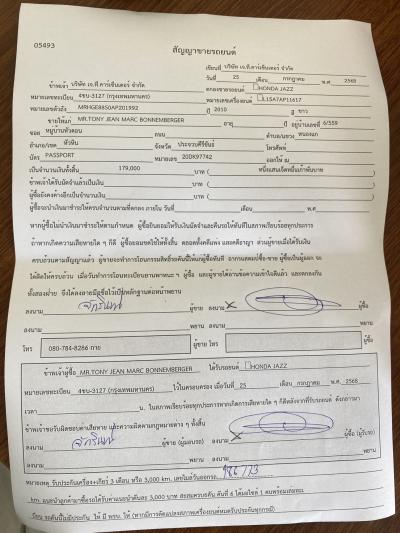 05493
สัญญาขายรถยนต์
เขียนที่ บริษัท เจ.ที.คาร์เซ็นเตอร์ จำกัด
วันที่ 25 เดือน กรกฎาคม พ.ศ. 2568
ข้าพเจ้า บริษัท เจ.ที.คาร์เซ็นเตอร์ จำกัด ตกลงขายรถยนต์ HONDA JAZZ
หมายเลขทะเบียน 4ขบ-3127 (กรุงเทพมหานคร) หมายเลขเครื่องยนต์ L15A7AP11617
หมายเลขตัวถัง MRHGE8850AP201992 ปี 2010 สี ขาว
ขายให้แก่ MR.TONY JEAN MARC BONNEMBERGER อายุ ปี อยู่บ้านเลขที่ 6/559
ซอย หมู่บ้านหัวดอน ถนน ตำบล/แขวง หนองแก
อำเภอ/เขต หัวหิน จังหวัด ประจวบคีรีขันธ์ โทรศัพท์
บัตร PASSPORT หมายเลข 20DK97742 ออกให้ ณ
เป็นจำนวนเงินทั้งสิ้น 179,000 บาท ( หนึ่งแสนเจ็ดหมื่นเก้าพันบาท
ข้าพเจ้าได้รับมัดจำแล้วเป็นเงิน บาท (
ผู้ซื้อยังคงค้างอีกเป็นจำนวนเงิน บาท (
ผู้ซื้อจะนำเงินมาชำระให้ครบจำนวนตามที่ตกลง ภายใน วันที่ เดือน พ.ศ.
หากผู้ซื้อไม่นำเงินมาชำระให้ตามกำหนด ผู้ซื้อยินยอมให้ริบเงินมัดจำและคืนรถให้ทันทีในสภาพเรียบร้อยทุกประการ
ถ้าหากเกิดความเสียหายใด ๆ ก็ดี ผู้ซื้อยอมชดใช้ให้ทั้งสิ้น ตลอดทั้งคดีแพ่ง และคดีอาญา ส่วนผู้ขายเมื่อได้รับเงิน
ครบถ้วนตามสัญญาแล้ว ผู้ขายจะทำการโอนกรรมสิทธิ์รถคันนี้ให้แก่ผู้ซื้อทันที อากรแสตมป์ซื้อ-ขาย ผู้ซื้อเป็นผู้ออก จะ
ได้ฝ่ายให้ครบถ้วน เมื่อวันทำการโอนทะเบียนยานพาหนะ ๆ ผู้ซื้อ และผู้ขายได้อ่านข้อความเข้าใจดีแล้ว และตกลงกัน
ทั้งสองฝ่าย จึงได้ลงลายมือชื่อไว้เป็นหลักฐานต่อหน้าพยาน
ลงนาม ผู้ขาย ลงนาม ผู้ซื้อ
ลงนาม พยาน ลงนาม พยาน
โทร 080-784-8286 ผู้ขาย โทร ผู้ซื้อ
ข้าพเจ้าผู้ซื้อ MR.TONY JEAN MARC BONNEMBERGER ได้รับรถยนต์ HONDA JAZZ
หมายเลขทะเบียน 4ขบ-3127 (กรุงเทพมหานคร) ไว้ในครอบครอง เมื่อวันที่ 25 เดือน กรกฎาคม พ.ศ. 2568
เวลา น. ในสภาพเรียบร้อยทุกประการหากเกิดการเสียหายใด ๆ ก็ดีหลังจากที่รับรถยนต์ ดังกล่าวมา
ข้าพเจ้าขอรับผิดชอบค่าเสียหาย และความผิดตามกฎหมายต่าง ๆ ทั้งสิ้น
ลงนาม ผู้ขาย (ผู้มอบรถ) ลงนาม ผู้ซื้อ (ผู้รับรถ)
ลงนาม พยาน ลงนาม พยาน
หมายเหตุ รับประกันเครื่อง+เกียร์ 3 เดือน หรือ 3,000 km.
km. แนะนำลูกค้ามาซื้อรถได้รับค่าแนะนำคันละ 3,000 บาท